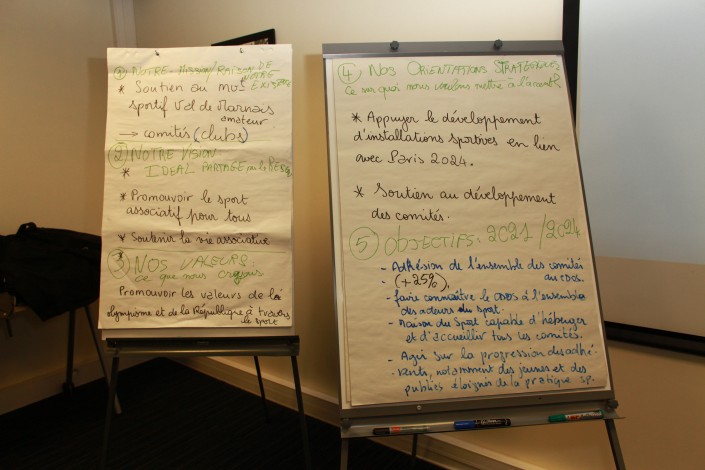 ① NOTRE MISSION / RAISON DE
NOTRE EXISTER
* Soutien au mvt
sportif Val de Marnais
amateur
→ comités (clubs)
② NOTRE VISION
* IDEAL PARTAGE par le RESEAU
* Promouvoir le sport
associatif pour tous
* Soutenir la vie associative
③ NOS VALEURS
ce que nous croyons
Promouvoir les valeurs de l'
olympisme et de la République à travers
le sport
④ NOS ORIENTATIONS STRATEGIQUES
Ce sur quoi nous voulons mettre à l'accent
* Appuyer le développement
d'installations sportives en lien
avec Paris 2024.
* Soutien au développement
des comités.
⑤ OBJECTIFS : 2021 / 2024
- Adhésion de l'ensemble des comités
au CDOS.
- (+25%),
- faire connaître le CDOS à l'ensemble
des acteurs du sport.
- Maison du Sport capable d'héberger
et d'accueillir tous les comités.
- Agir sur la progression des adhé-
-rents, notamment des jeunes et des
publics éloignés de la pratique sp.